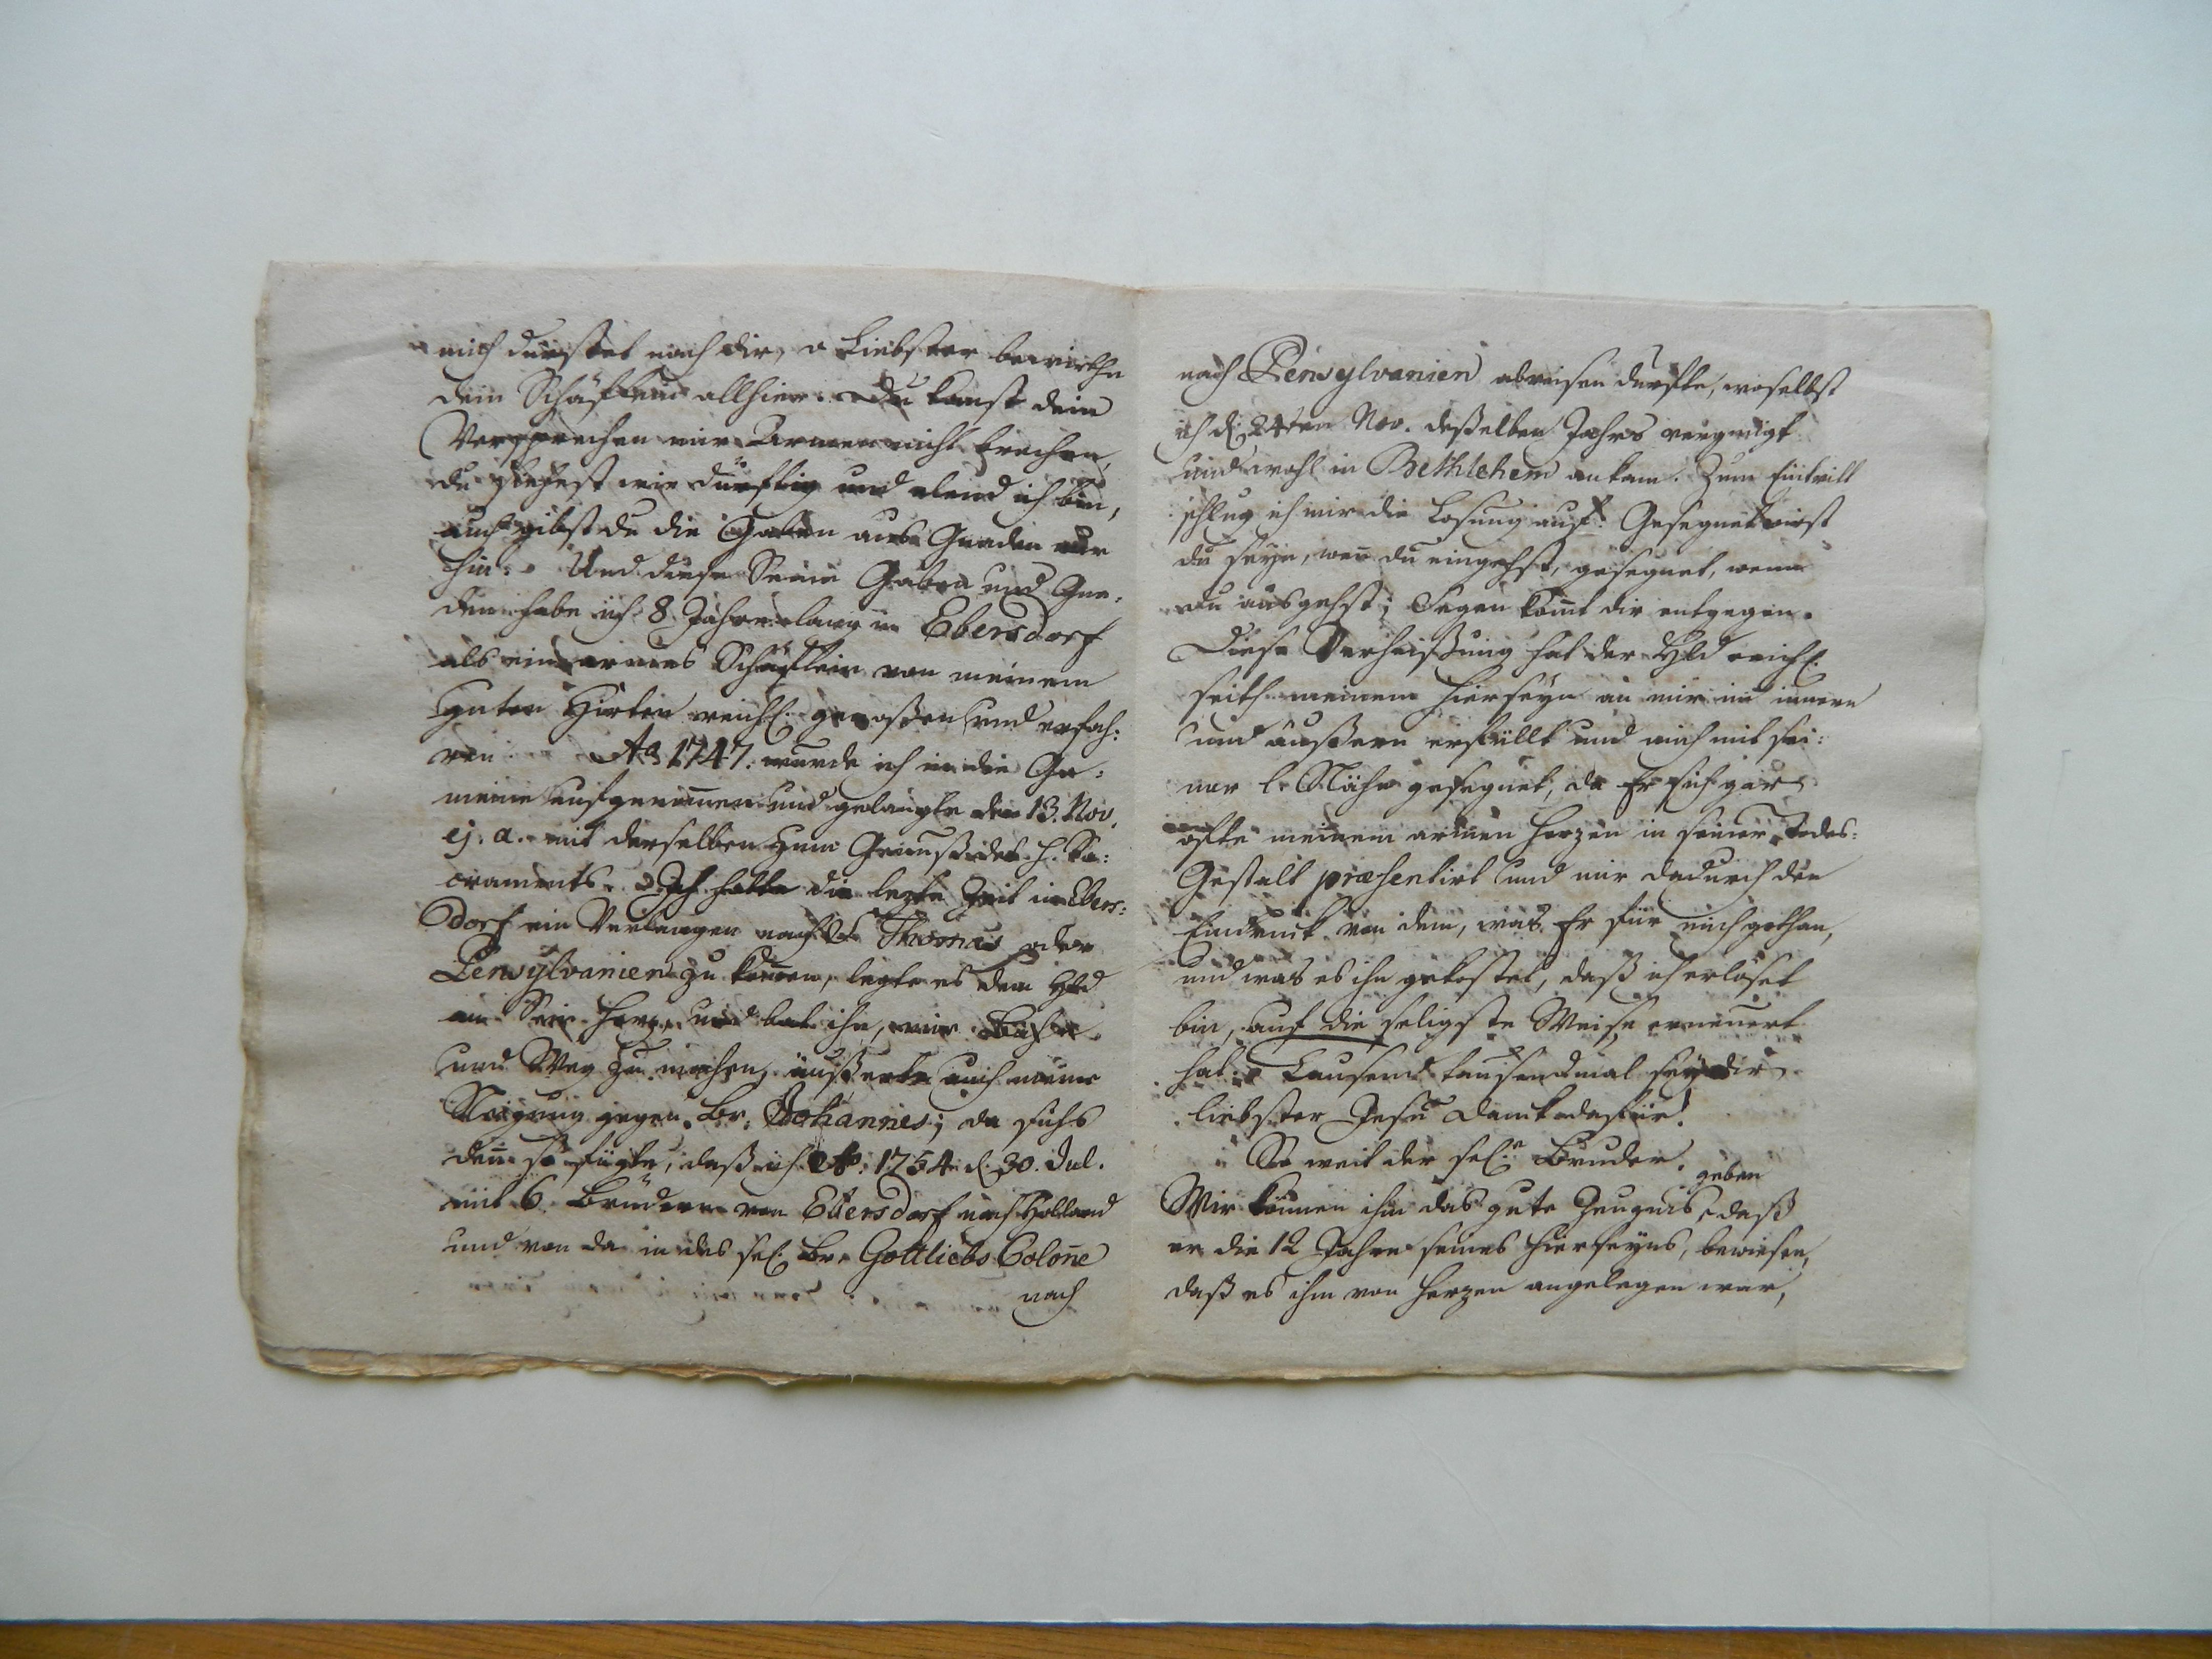 mich dürstet nach dir, o Liebster bewirthe
dein Schäflein allhier. Du kanst dein
Versprechen mir Armen nicht brechen,
du siehest wie dürftig und elend ich bin,
auch gibst du die Gaben aus Gnaden nur
hin. Und diese Seine Gaben und Gna-
den habe ich 8 Jahre lang in Ebersdorf
als ein armes Schäflein von meinem
guten Hirten reichl. genoßen und erfah:
ren. Ao 1747. wurde ich in die Ge:
meine aufgenom̄en und gelangte den 13. Nov.
ej. a. mit derselben zum Genuß des H. Sa:
craments. Ich hatte die lezte Zeit in Ebers:
dorf ein Verlangen nach St. Thomas oder
Pensylvanien zu kom̄en, legte es dem Hld
an Sein Herz, und bat ihn, mir Bahn
und Weg zu machen, äußerte auch meine
Neigung gegen Br. Johannes; da sichs
den̄ so fügte, daß ich Ao. 1754 d. 30. Jul.
mit 6. Brüdern von Ebersdorf nach Holland
und von da in des sel. Br. Gottliebs Colon̄e
nach
nach Pensylvanien abreisen durfte, woselbst
ich d. 24ten Nov. deßelben Jahrs vergnügt
und wohl in Bethlehem ankam. Zum Eintritt
schlug ich mir die Losung auf: Gesegnet wirst
du seyn, wen̄ du eingehst, gesegnet, wenn
du ausgehst; Segen kom̄t dir entgegen.
Diese Verheißung hat der Hld reichl.
seith meinem Hierseyn an mir im innern
und äußern erfüllt und mich mit sei:
ner l. Nähe gesegnet, da Er sich gar
ofte meinem armen Herzen in seiner Todes:
Gestalt præsentirt und mir dadurch den
Eindruck von dem, was Er für mich gethan,
und was es ihn gekostet, daß ich erlöset
bin, auf die seligste Weise erneuert
hat. Tausend tausendmal sey dir
liebster Jesu Dank dafür!
So weit der sel. Bruder.
geben
Wir können ihm das gute Zeugnis, daß
er die 12 Jahre seines Hierseyns, bewiesen,
daß es ihm von Herzen angelegen war,